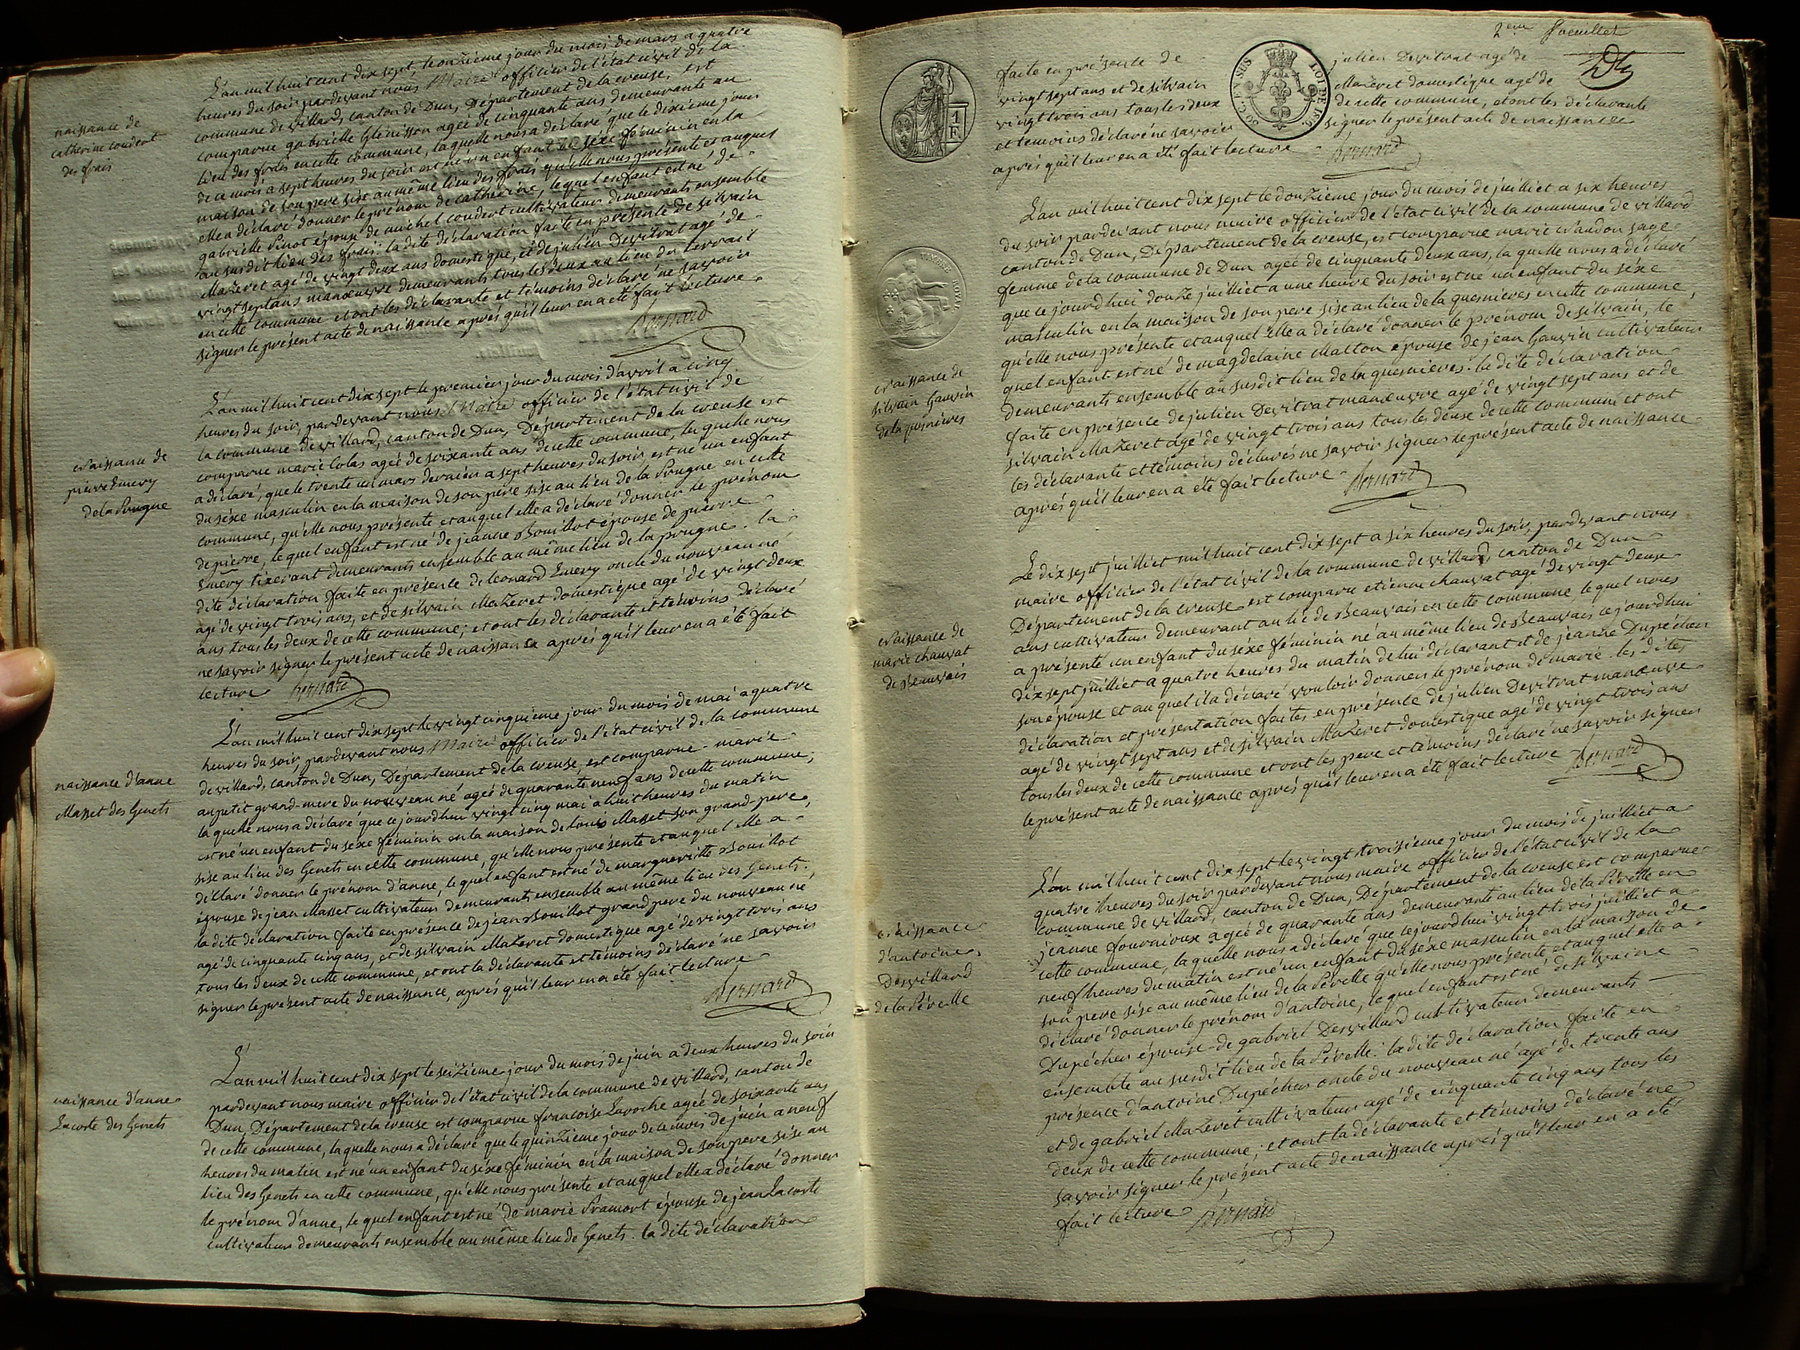 naissance de
catherine coudert
des frais
L'an mil huit cent dix sept, le onzième jour du mois de mars a quatre
heures du soir pardevant nous Maire officier de l'état civil de la
commune de villard, canton de Dun, Département de la creuse, est
comparue gabrielle Glenisson agée de cinquante ans demeurante au
lieu des frais en cette commune, laquelle nous a déclaré que le dixième jour
de ce mois a sept heures du soir est né un enfant du séxe féminin en la
maison de son pere sise au même lieu des frais qu'elle nous présente et auquel
elle a déclaré donner le prénom de catherine, lequel enfant est né de
gabrielle Pinot épouse de michel coudert cultivateur demeurants ensemble
au susdit lieu des frais: la dite déclaration faite en présence de silvain
Mazeret agé de vingt deux ans domestique, et de julien Devitrat agé de
vingt sept ans manœuvre demeurants tous les deux au lieu du terrail
en cette commune et ont les déclarante et témoins déclaré ne savoir
signer le présent acte de naissance après qu'il leur en a été fait lecture
Bernard
naissance de
pierre Emery
de la Pougne
L'an mil huit cent dix sept le premier jour du mois d'avril a cinq
heures du soir, pardevant nous Maire officier de l'état civil de
la commune de villard, canton de Dun, Département de la creuse est
comparue marie Colas agée de soixante ans de cette commune, laquelle nous
a déclaré, que le trente un mars dernier a sept heures du soir est né un enfant
du séxe masculin en la maison de son père sise au lieu de la Pougne en cette
commune, qu'elle nous présente et auquel elle a déclaré donner le prénom
de pierre, lequel enfant est né de jeanne Bouillot épouse de pierre
Emery tixerant demeurants ensemble au même lieu de la pougne. la
dite déclaration faite en présence de leonard Emery oncle du nouveau né
agé de vingt trois ans, et de silvain Mazeret domestique agé de vingt deux
ans tous les deux de cette commune; et ont les déclarante et témoins déclaré
ne savoir signer le présent acte de naissance après qu'il leur en a été fait
lecture Bernard
naissance d'anne
Masset des Genets
L'an mil huit cent dix sept le vingt cinquième jour du mois de mai a quatre
heures du soir pardevant nous Maire officier de l'état civil de la commune
de villard, canton de Dun, Département de la creuse, est comparue marie
aupetit grand-mere du nouveau né agée de quarante neuf ans de cette commune;
laquelle nous a déclaré que ce jourd'hui vingt cinq mai a huit heures du matin
est né un enfant du sexe féminin en la maison de louis Masset son grand-pere,
sise au lieu des Genets en cette commune, qu'elle nous présente et auquel elle a
déclaré donner le prénom d'anne, lequel enfant est né de margueritte Bouillot
épouse de jean Masset cultivateurs demeurants ensemble au même lieu des Genets.
la dite déclaration faite en présence de jean Bouillot grand pere du nouveau né
agé de cinquante cinq ans, et de silvain Mazeret domestique agé de vingt trois ans
tous les deux de cette commune, et ont la déclarante et témoins déclaré ne savoir
signer le présent acte de naissance, après qu'il leur en a été fait lecture
Bernard
naissance d'anne
Lacoste des Genets
L'an mil huit cent dix sept le seizième jour du mois de juin a deux heures du soir
pardevant nous maire officier de l'état civil de la commune de villard, canton de
Dun, Département de la creuse est comparue francoise Laroche agée de soixante ans
de cette commune, laquelle nous a déclaré que le quinzième jour de ce mois de juin a neuf
heures du matin est né un enfant du sexe féminin en la maison de son pere sise au
lieu des Genets en cette commune, qu'elle nous présente et auquel elle a déclaré donner
le prénom d'anne, lequel enfant est né de marie Pramort épouse de jean Lacoste
cultivateurs demeurants ensemble au même lieu de Genets. la dite déclaration
2eme feuillet
1 F.
faite en présence de julien Devitrat agé de
vingt sept ans et de silvain Mazeret domestique agé de
vingt trois ans tous les deux de cette commune, et ont les déclarante
et témoins déclaré ne savoir signer le présent acte de naissance
après qu'il leur en a été fait lecture Bernard
naissance de
silvain Gauvin
de la quesnieres
L'an mil huit cent dix sept le douzième jour du mois de juillet a six heures
du soir pardevant nous maire officier de l'état civil de la commune de villard
canton de Dun, Département de la creuse, est comparue marie vaudon sage
femme de la commune de Dun agée de cinquante deux ans, la quelle nous a déclaré
que ce jourd'hui douze juillet a une heure du soir est né un enfant du séxe
masculin en la maison de son pere sise au lieu de la quesnieres en cette commune,
qu'elle nous présente et auquel elle a déclaré donner le prénom de silvain, le
quel enfant est né de magdelaine Malton épouse de jean Gauvin cultivateurs
demeurants ensemble au susdit lieu de la quesnieres. la dite déclaration
faite en présence de julien Devitrat manœuvre agé de vingt sept ans et de
silvain Mazeret agé de vingt trois ans tous les deux de cette commune et ont
les déclarante et témoins déclarés ne savoir signer le présent acte de naissance
après qu'il leur en a été fait lecture Bernard
naissance de
marie chauvat
de Beauvais
Le dix sept juillet mil huit cent dix sept a six heures du soir, pardevant nous
maire officier de l'état civil de la commune de villard, canton de Dun
Département de la creuse est comparu etienne chauvat agé de vingt deux
ans cultivateur demeurant au lieu de Beauvais en cette commune lequel nous
a présenté un enfant du séxe féminin né au même lieu de Beauvais ce jourd'hui
dix sept juillet a quatre heures du matin de lui déclarant et de jeanne Dupêcher
son épouse et auquel il a déclaré vouloir donner le prénom de marie. les dites
déclaration et présentation faites en présence de julien Devitrat manœuvre
agé de vingt sept ans et de silvain Mazeret domestique agé de vingt trois ans
tous les deux de cette commune et ont les pere et témoins déclaré ne savoir signer
le présent acte de naissance après qu'il leur en a été fait lecture Bernard
naissance
d'antoine
Desvillard
de la Pérelle
L'an mil huit cent dix sept le vingt troisième jour du mois de juillet a
quatre heures du soir pardevant nous maire officier de l'état civil de la
commune de villard, canton de Dun, Département de la creuse est comparue
jeanne fournioux agée de quarante ans demeurante au lieu de la Pérelle en
cette commune, laquelle nous a déclaré que ce jourd'hui vingt trois juillet a
neuf heures du matin est né un enfant du séxe masculin en la maison de
son pere sise au même lieu de la Pérelle qu'elle nous présente, et auquel elle a
déclaré donner le prénom d'antoine, lequel enfant est né de silvaine
Dupêcher épouse de gabriel Desvillard cultivateur demeurants
ensemble au susdit lieu de la Pérelle: la dite déclaration faite en
présence d'antoine Dupêcher oncle du nouveau né agé de trente ans
et de gabriel Mazeret cultivateur agé de cinquante cinq ans tous les
deux de cette commune; et ont la déclarante et témoins déclaré ne
savoir signer le présent acte de naissance après qu'il leur en a été
fait lecture Bernard